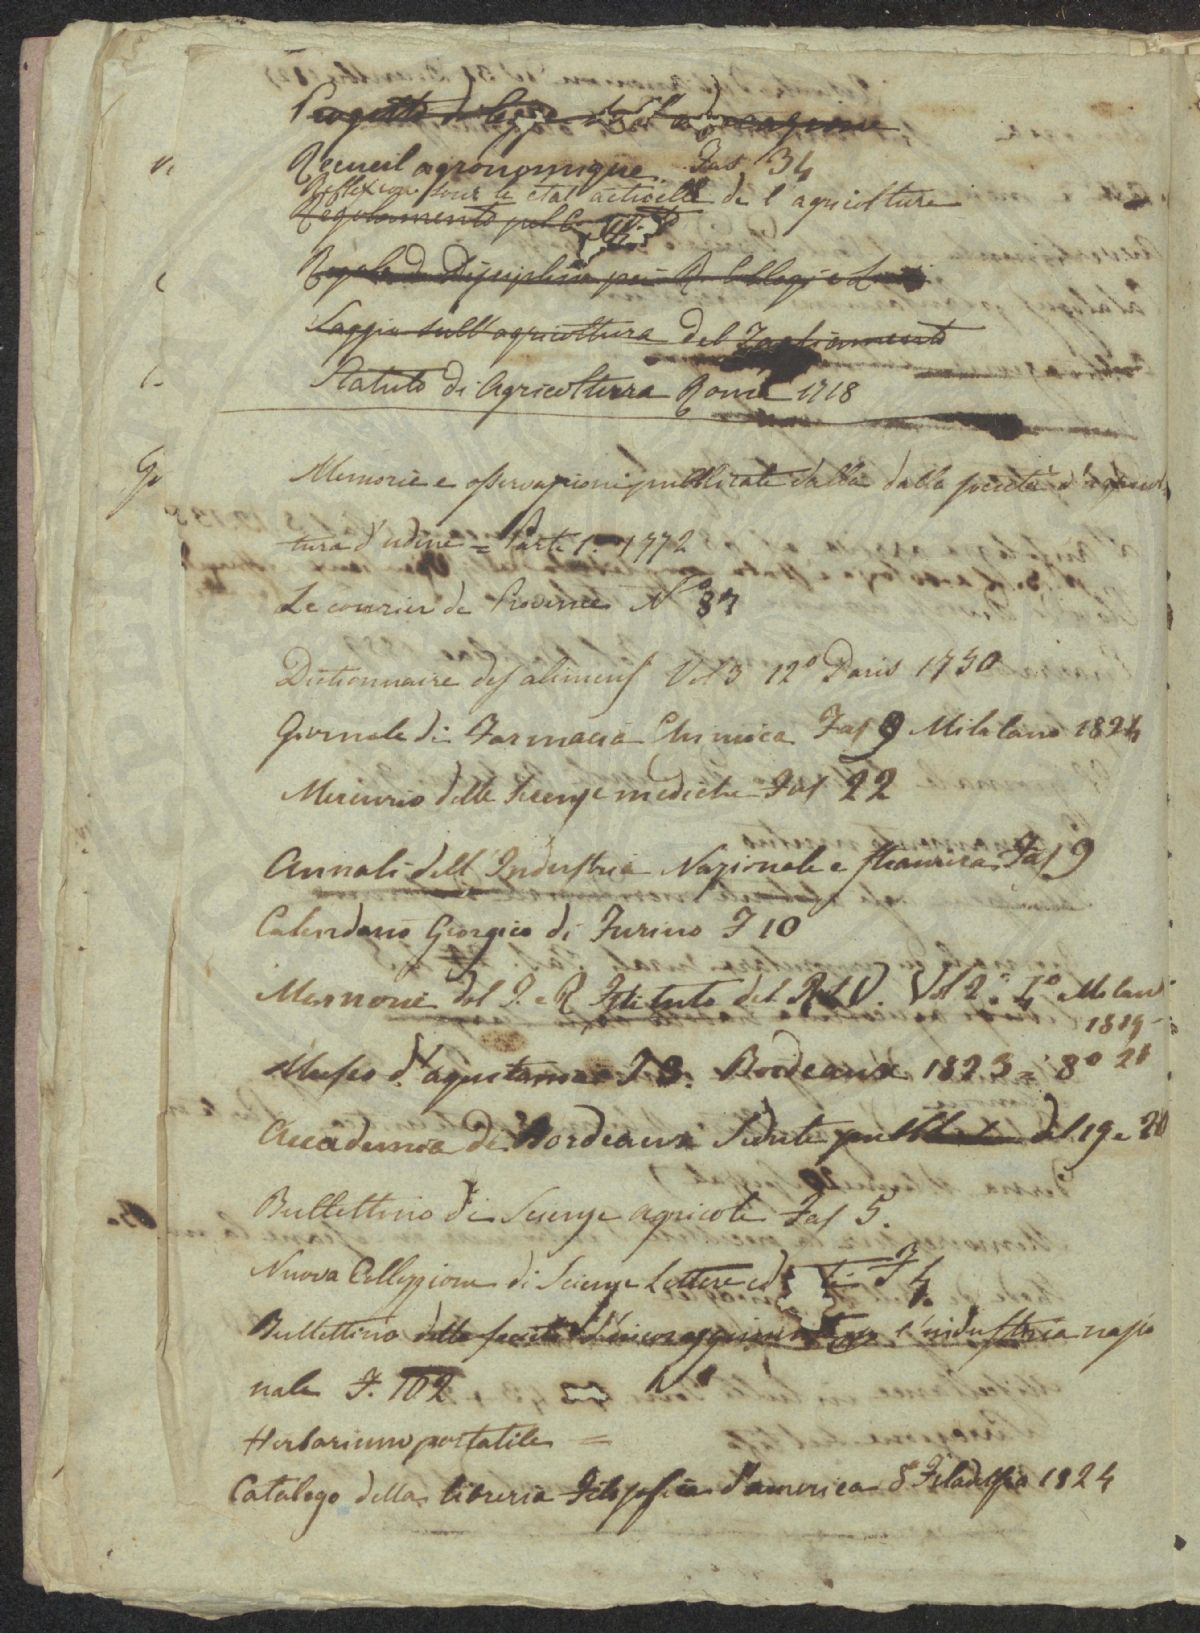 Progetto di legge
Recueil agronomique Fas 34
Reflexion sour le etat actuelle de l'agricolture
Regolamento pel
Regole di Disciplina per R. Collegi e
Saggio sull'agricoltura del Tagliamento
Statuto di Agricolterra Roma 1718
Memorie e osservazioni pubblicate dalla dalla società d'agricol
tura d'udine = Parte 1. 1772
Le courier de Provence No 87
Dictionnaire des alimens Vol 3 12o Paris 1750
Giornale di Farmacia Chimica Fas 9 Milalano 1824
Mercurio delle Scienze mediche Fas 22
Annali dell'Industria Nazionale e straniera Fas 9
Calendario Giorgico di Turino F 10
Memorie del I. e R Istituto del R.L.V. Vol 2. 4o Milano
1819
Museo d'aquitania T 3. Bordeaux 1823 = 8o
Accademia di Bordeaux Sedute pubbl del 19 e 20
Bullettino di Scienze agricole Fas 5.
Nuova Collezione di Scienze Lettere ed F 4
Bullettino della società d'incoraggiamento l'industria nazio
nale F. 102
Herbarium portatile =
Catalogo della libreria Filosofica d'america 8 Filadelfia 1824